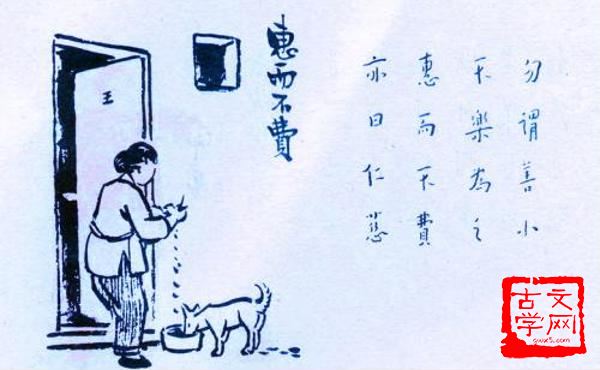 惠而不費
勿謂善小
不樂為之
惠而不費
亦曰仁慈
王
古文
学网